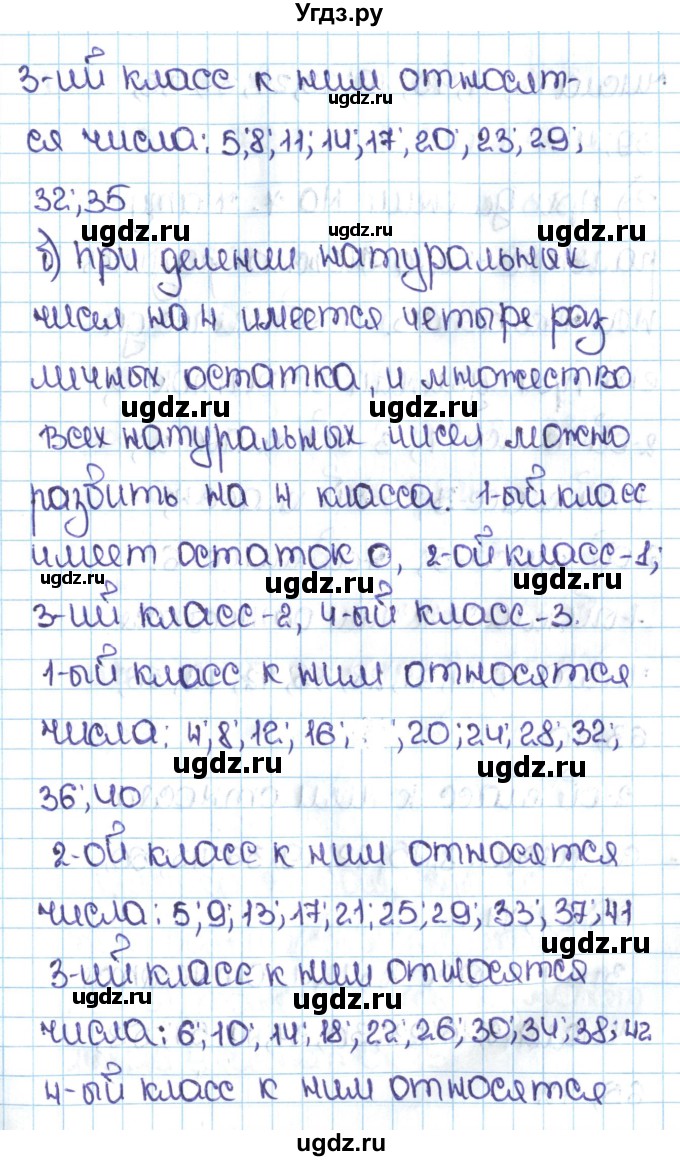 Угдз.ру
3-ий класс к ним относят-
ugdz.ru
ся числа: 5;8;11;14;17;20;23;29;
32;35
ugdz.ru ugdz.ru
б) при делении натуральных
чисел на 4 имеется четыре раз
личных остатка, и множество
ugdz.ru ugdz.ru
всех натуральных чисел можно
разбить на 4 класса. 1-ый класс
имеет остаток 0, 2-ой класс-1;
ugdz.ru ugdz.ru ugdz.ru
3-ий класс-2, 4-ый класс-3.
1-ый класс к ним относятся
числа: 4;8;12;16; ;20;24;28;32;
ugdz.ru ugdz.ru
36;40
2-ой класс к ним относятся
числа: 5;9;13;17;21;25;29;33;37;41
ugdz.ru
3-ий класс к ним относятся
ugdz.ru ugdz.ru
числа: 6;10;14;18;22;26;30;34;38;42
4-ый класс к ним относятся
ugdz.ru